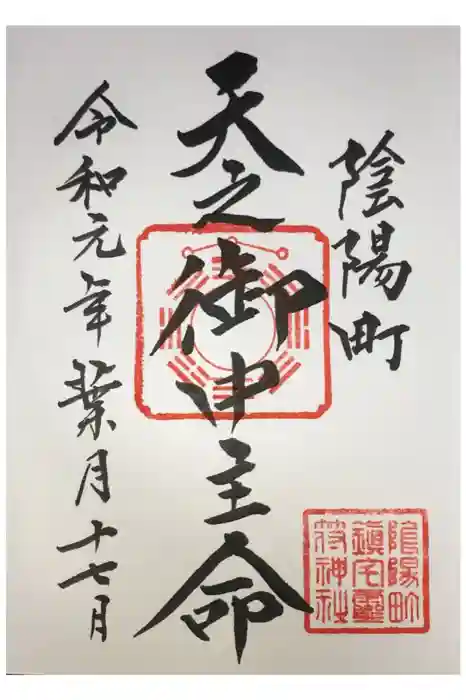 陰陽町
天之御中主命
令和元年葉月十七月
陰陽町
鎮宅霊
符神社